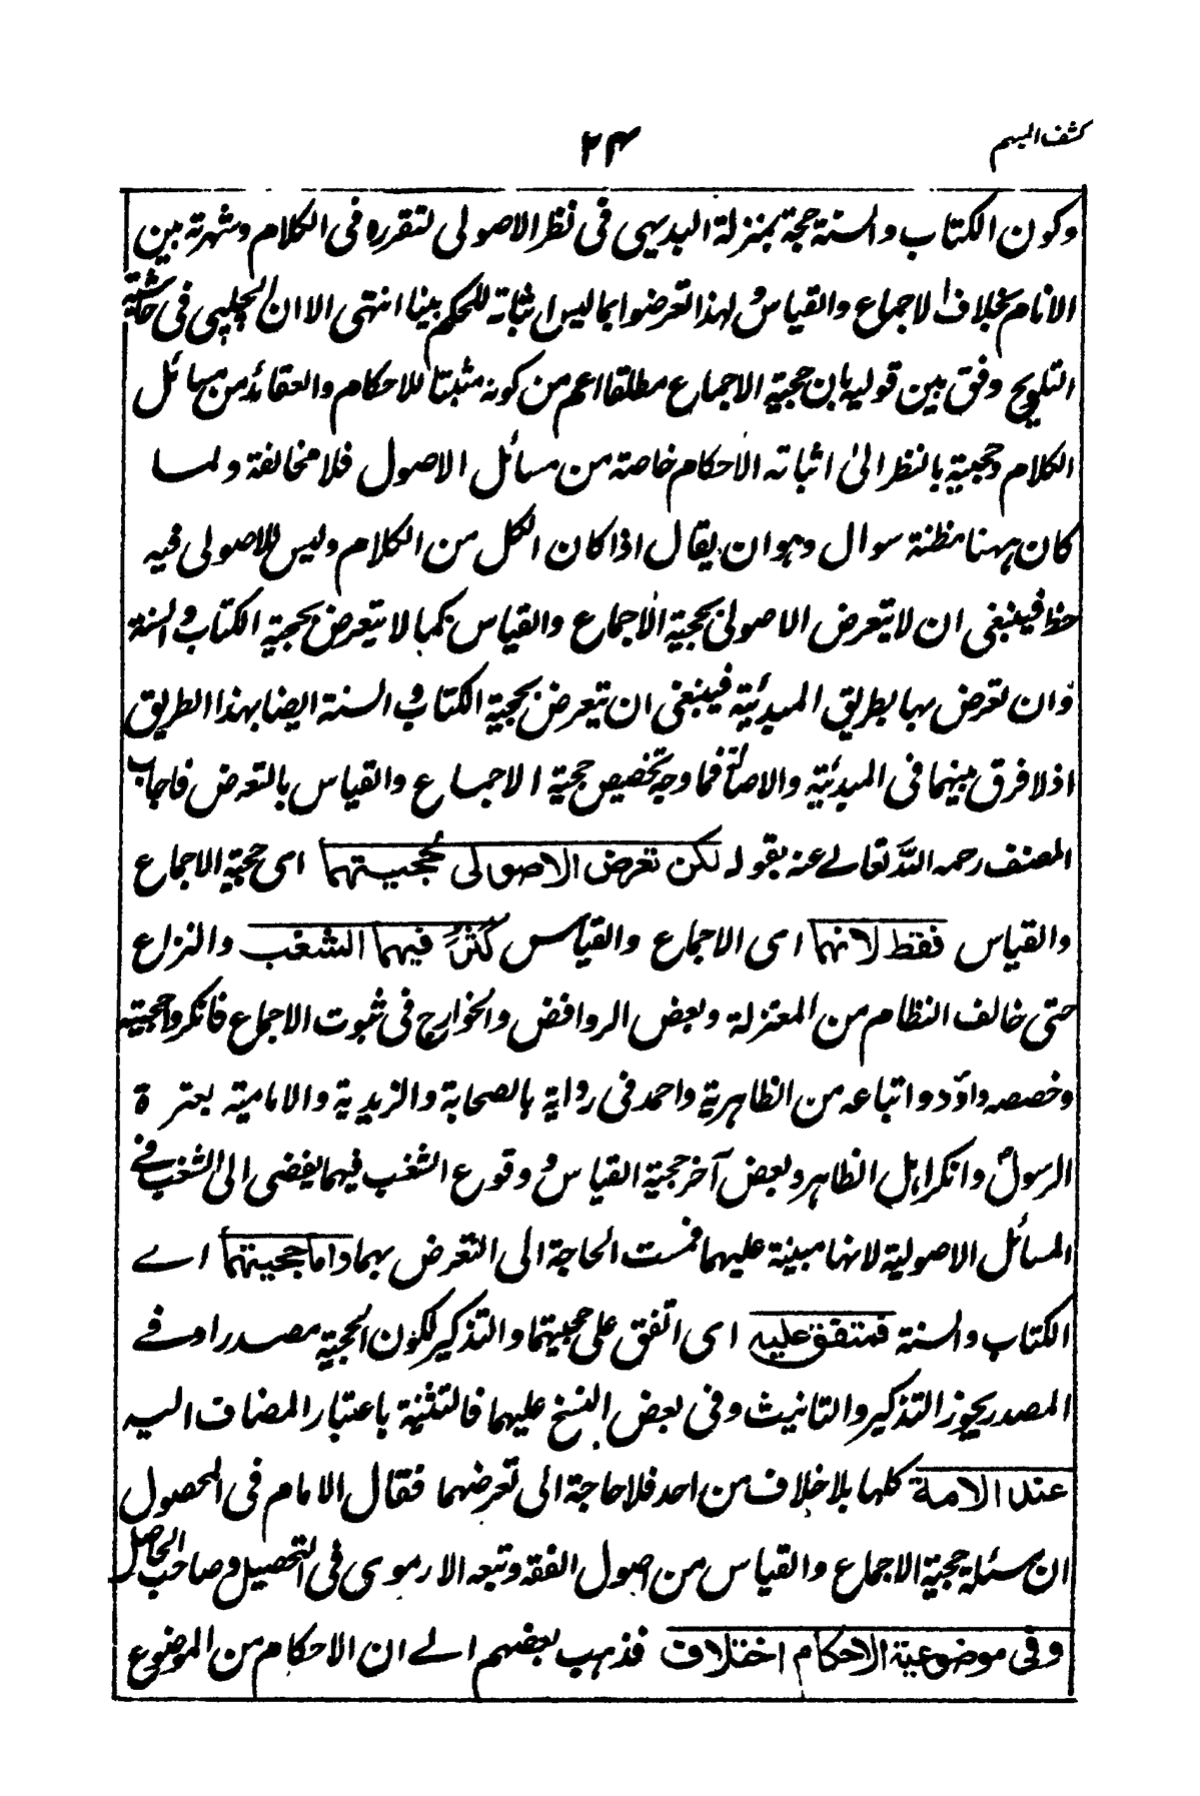 كشف المبهم
٢٤
وكون الكتاب والسنة حجة بمنزلة البديهى فى نظر الاصولى لتقرره فى الكلام وشهرته بين
الانام بخلاف الاجماع والقياس ولهذا تعرضوا بما ليس اثباته للحكم بينا انتهى الا ان الچلپى فى حاشية
التلويح وفق بين قوليه بان حجية الاجماع مطلقا اعم من كونه مثبتا للاحكام والعقائد من مسائل
الكلام وحجيته بالنظر الى اثباته الاحكام خاصة من مسائل الاصول فلا مخالفة ولما
كان ههنا مظنة سوال وهو ان يقال اذا كان الكل من الكلام وليس للاصولى فيه
حظ فينبغى ان لا يتعرض الاصولى بحجية الاجماع والقياس كما لا يتعرض بحجية الكتاب والسنة
وان تعرض بها بطريق المبدئية فينبغى ان يتعرض بحجية الكتاب والسنة ايضا بهذا الطريق
اذ لا فرق بينهما فى المبدئية والاصالة فما وجه تخصيص حجية الاجماع والقياس بالتعرض فاجاب
المصنف رحمه الله تعالے عنه بقوله لكن تعرض الاصولى لحجيتهما اى حجية الاجماع
والقياس فقط لانهما اى الاجماع والقياس كثر فيهما الشغب والنزاع
حتى خالف النظام من المعتزلة وبعض الروافض والخوارج فى ثبوت الاجماع فانكروا حجيته
وخصصه داؤد واتباعه من الظاهرية واحمد فى رواية بالصحابة والزيدية والامامية بعترة
الرسول وانكر اهل الظاهر وبعض آخر حجية القياس ووقوع الشغب فيهما يفضى الى الشغب فے
المسائل الاصولية لانها مبنية عليهما فمست الحاجة الى التعرض بهما واما حجيتهما اے
الكتاب والسنة فمتفق عليه اى اتفق على حجيتهما والتذكير لكون الحجية مصدرا وفے
المصدر يجوز التذكير والتانيث وفى بعض النسخ عليهما فالتثنية باعتبار المضاف اليه
عند الامة كلها بلا خلاف من احد فلا حاجة الى تعرضهما فقال الامام فى المحصول
ان مسئلة حجية الاجماع والقياس من اصول الفقه وتبعه الارموى فى التحصيل وصاحب الحاصل
وفى موضوعية الاحكام اختلاف فذهب بعضهم الے ان الاحكام من الموضوع